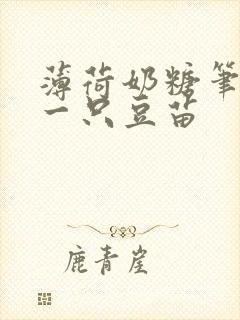 薄荷奶糖笔
一只豆苗
鹿青崖